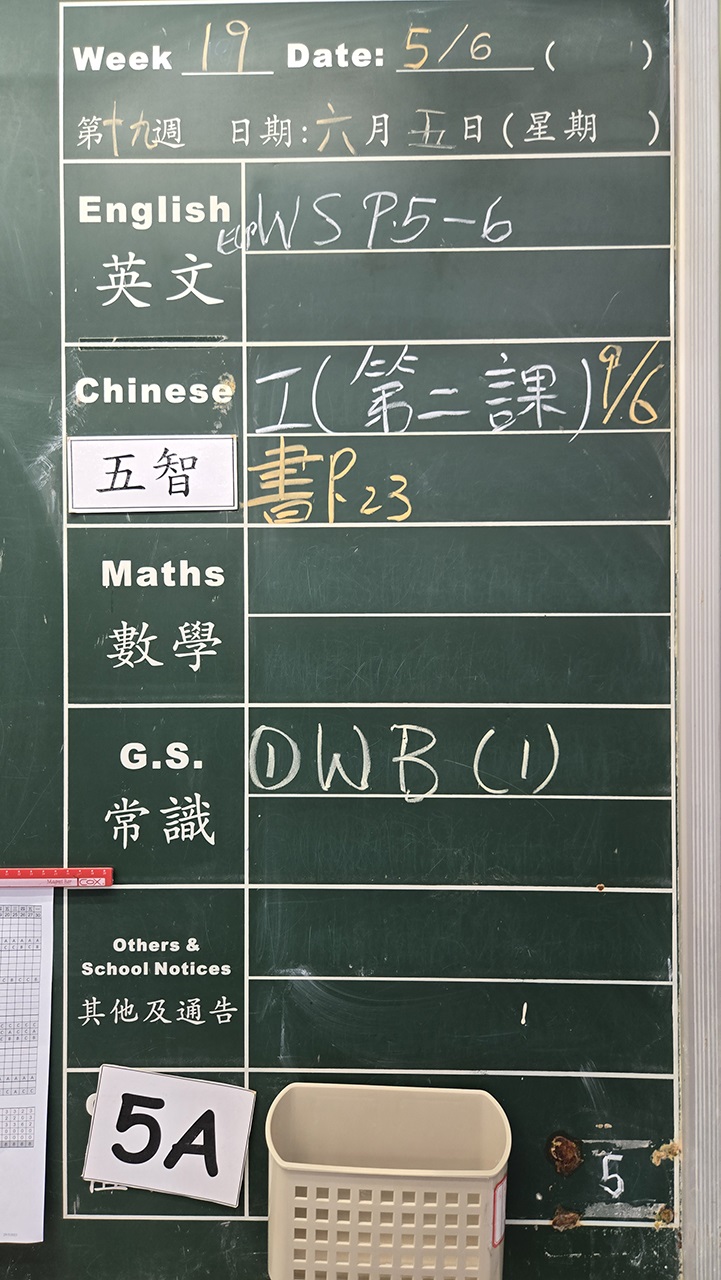 Week 19 Date: 5/6 ( )
第十九週 日期:六月五日(星期 )
English
WS P.5-6
英文
Chinese
工(第二課) 9/6
五智
書P.23
Maths
數學
G.S.
①WB(1)
常識
Others &
School Notices
其他及通告
COX
5A
5